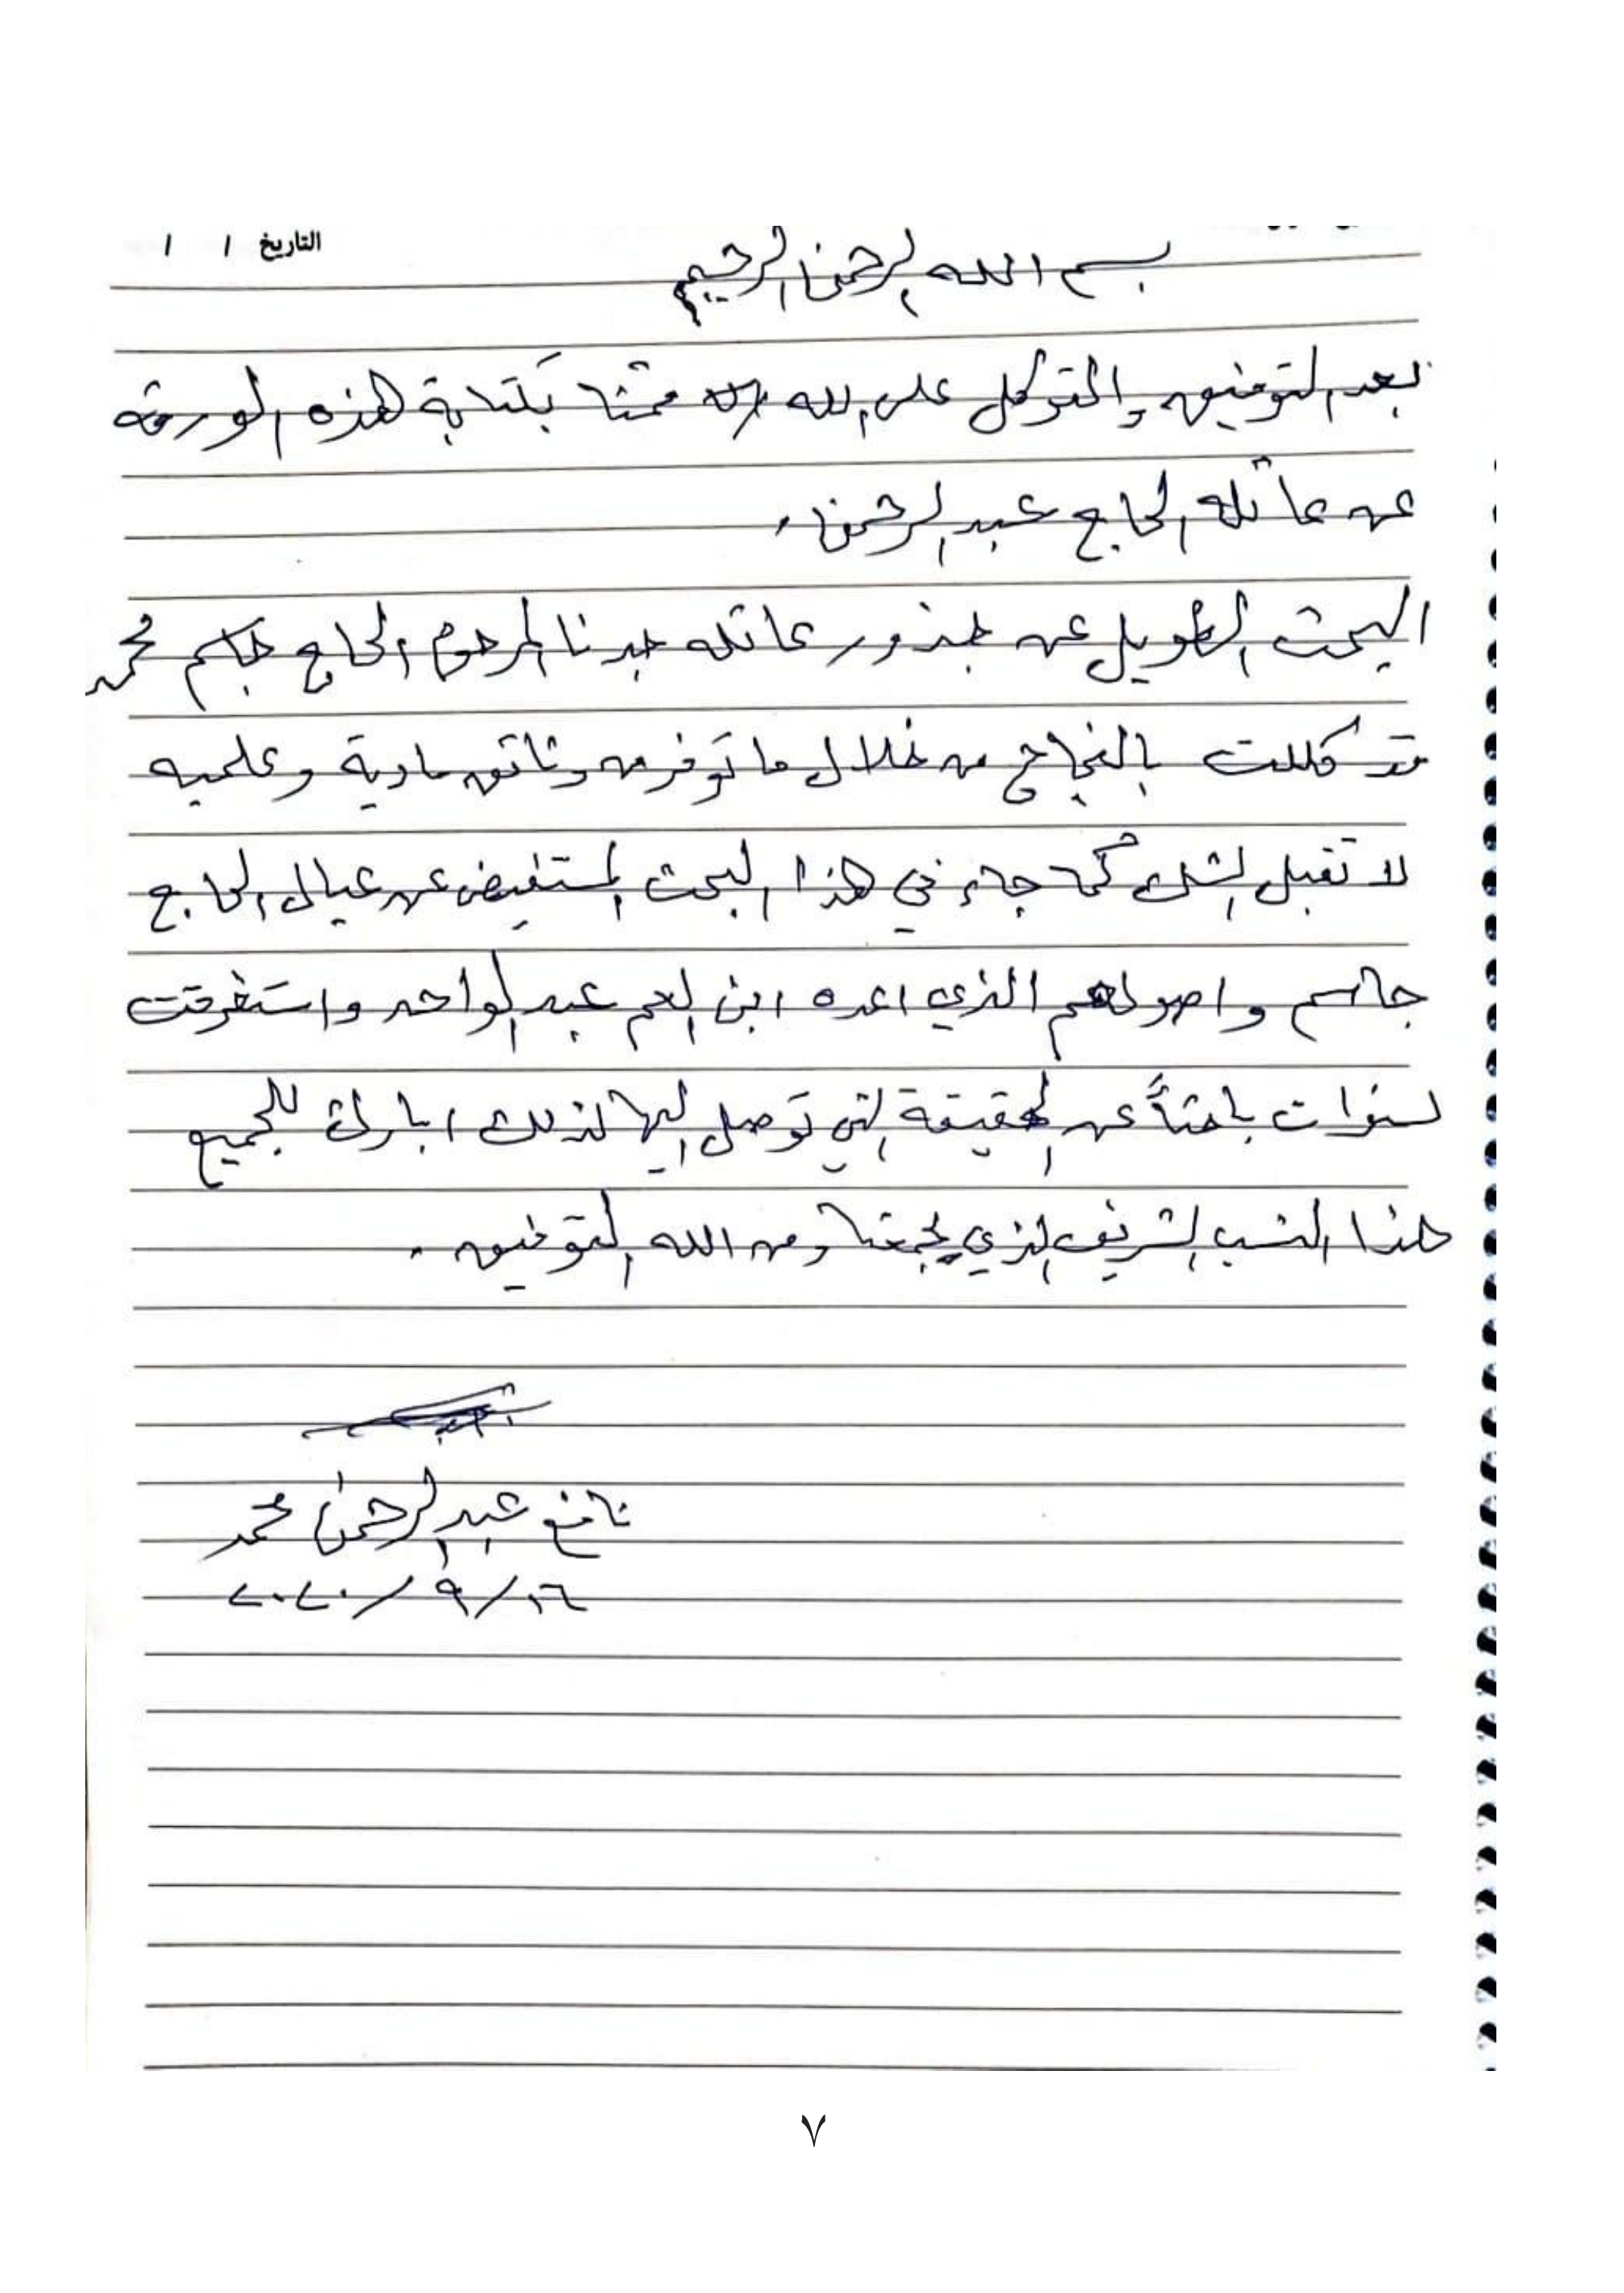 التاريخ / /
بسم الله الرحمن الرحيم
بعد التوفيق والتوكل على الله قمنا بكتابة هذه الورقة
عن عائلة الحاج عبد الرحمن .
البحث الطويل عن جذور عائلة جدنا المرحوم الحاج جاسم محمد
قد كللت بالنجاح من خلال ما توفر من وثائق مادية وعلميه
لا تقبل الشك كما جاء في هذا البحث المستفيض عن عيال الحاج
جاسم واصولهم الذي اعده ابن العم عبد الواحد واستغرقت
سنوات باحثاً عن الحقيقة التي توصل اليها لذلك ابارك للجميع
هذا النسب الشريف الذي يجمعنا ومن الله التوفيق .
نافع عبد الرحمن محمد
١٦ / ٩ / ٢٠٢٠
٧